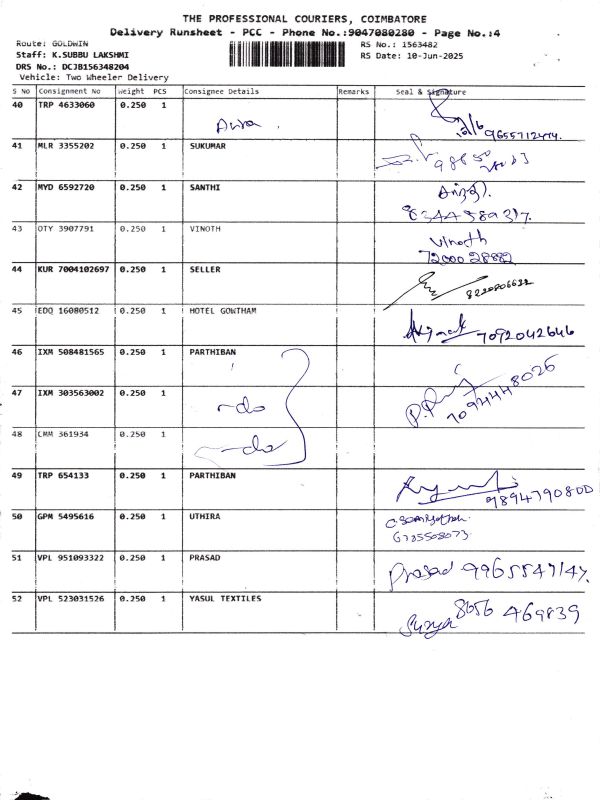 THE PROFESSIONAL COURIERS, COIMBATORE
Delivery Runsheet - PCC - Phone No.:9047080280 - Page No.:4
Route: GOLDWIN
RS No.: 1563482
Staff: K.SUBBU LAKSHMI
RS Date: 10-Jun-2025
DRS No.: DCJB156348204
Vehicle: Two Wheeler Delivery
S No Consignment No Weight PCS Consignee Details Remarks Seal & Signature
40 TRP 4633060 0.250 1
9655712474.
41 MLR 3355202 0.250 1 SUKUMAR
42 MYD 6592720 0.250 1 SANTHI
சாந்தி.
8344 589 317.
43 OTY 3907791 0.250 1 VINOTH
Vinoth
72000 28882
44 KUR 7004102697 0.250 1 SELLER
8220806632
45 EDQ 16080512 0.250 1 HOTEL GOWTHAM
7092042646
46 IXM 508481565 0.250 1 PARTHIBAN
47 IXM 303563002 0.250 1 -do
7094448026
48 CMM 361934 0.250 1 -do
49 TRP 654133 0.250 1 PARTHIBAN
9894790800
50 GPM 5495616 0.250 1 UTHIRA
51 VPL 951093322 0.250 1 PRASAD
Prasad 9965547147.
52 VPL 523031526 0.250 1 YASUL TEXTILES
Surya 8056 469839